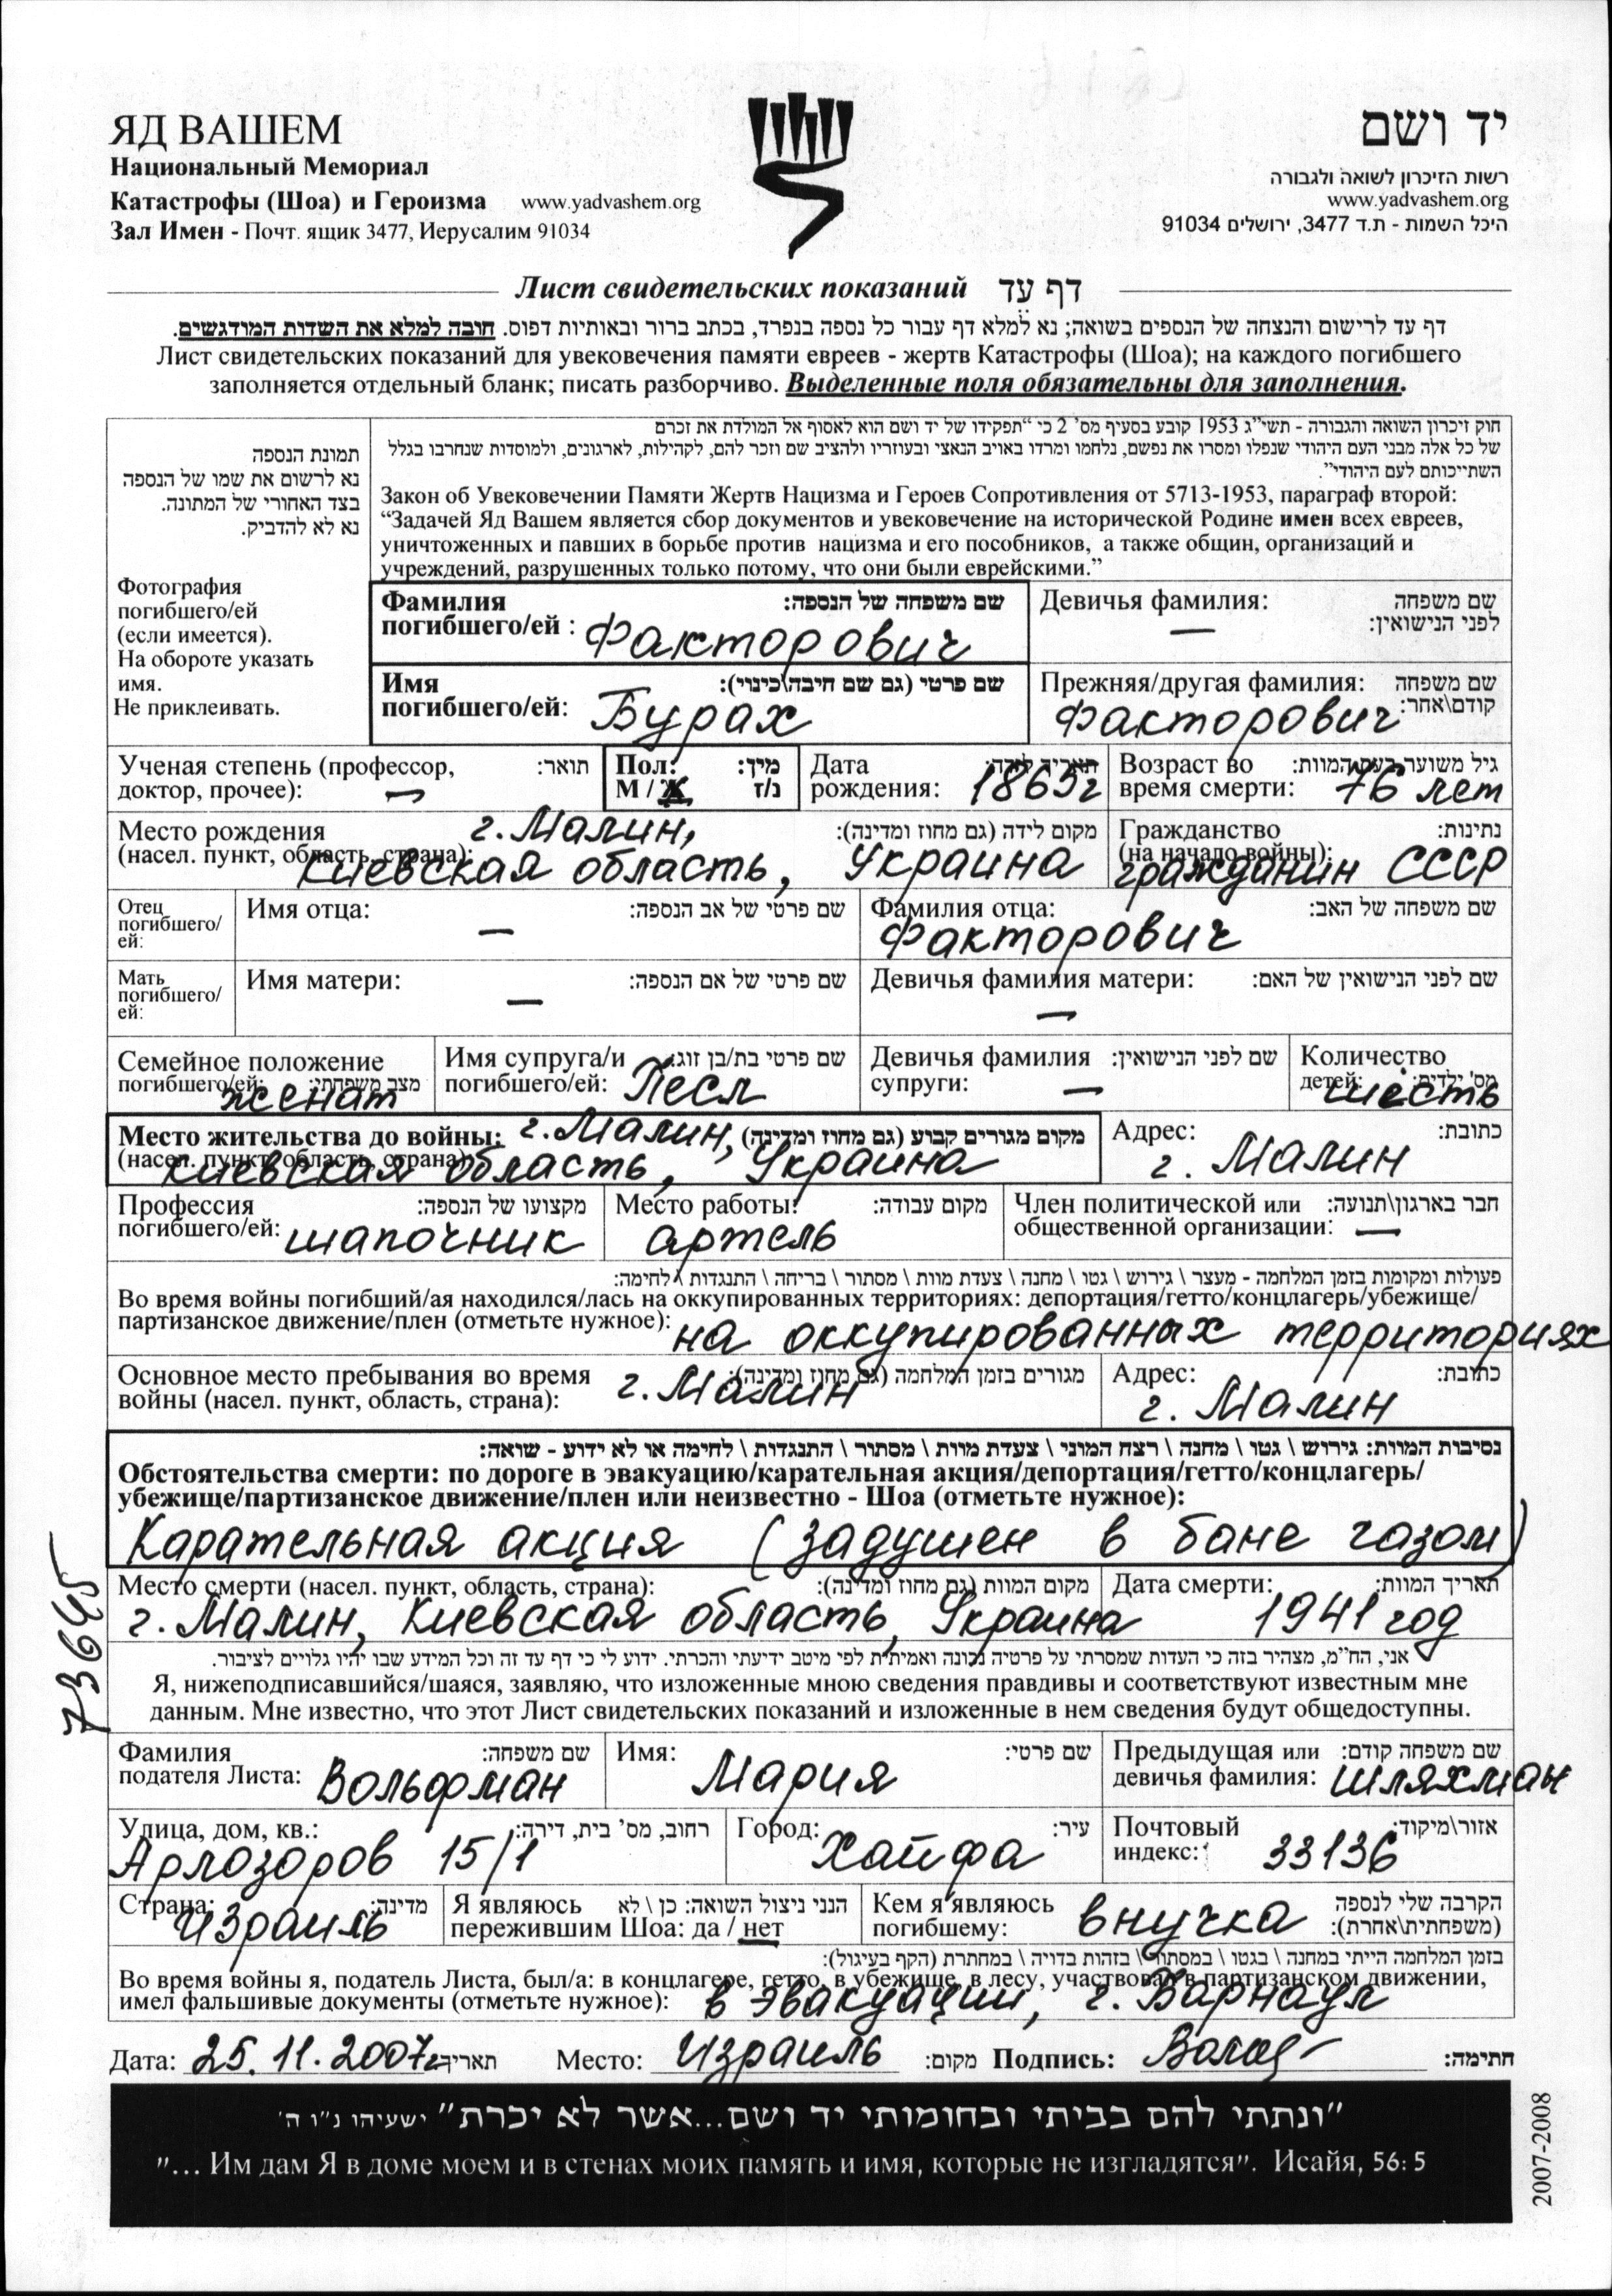 ЯД ВАШЕМ
Национальный Мемориал
Катастрофы (Шоа) и Героизма www.yadvashem.org
Зал Имен - Почт. ящик 3477, Иерусалим 91034
יד ושם
רשות הזיכרון לשואה ולגבורה
www.yadvashem.org
היכל השמות - ת.ד 3477, ירושלים 91034
Лист свидетельских показаний דף עד
דף עד לרישום והנצחה של הנספים בשואה; נא למלא דף עבור כל נספה בנפרד, בכתב ברור ובאותיות דפוס. חובה למלא את השדות המודגשים.
Лист свидетельских показаний для увековечения памяти евреев - жертв Катастрофы (Шоа); на каждого погибшего
заполняется отдельный бланк; писать разборчиво. Выделенные поля обязательны для заполнения.
תמונת הנספה
נא לרשום את שמו של הנספה
בצד האחורי של המתונה.
נא לא להדביק.
Фотография
погибшего/ей
(если имеется).
На обороте указать
имя.
Не приклеивать.
חוק זיכרון השואה והגבורה - תשי"ג 1953 קובע בסעיף מס' 2 כי "תפקידו של יד ושם הוא לאסוף אל המולדת את זכרם
של כל אלה מבני העם היהודי שנפלו ומסרו את נפשם, נלחמו ומרדו באויב הנאצי ובעוזריו ולהציב שם וזכר להם, לקהילות, לארגונים, ולמוסדות שנחרבו בגלל
השתייכותם לעם היהודי".
Закон об Увековечении Памяти Жертв Нацизма и Героев Сопротивления от 5713-1953, параграф второй:
"Задачей Яд Вашем является сбор документов и увековечение на исторической Родине имен всех евреев,
уничтоженных и павших в борьбе против нацизма и его пособников, а также общин, организаций и
учреждений, разрушенных только потому, что они были еврейскими."
Фамилия שם משפחה של הנספה:
погибшего/ей : Факторович
Девичья фамилия: שם משפחה
לפני הנישואין: —
Имя שם פרטי (גם שם חיבה\כינוי):
погибшего/ей: Бурах
Прежняя/другая фамилия: שם משפחה
קודם\אחר: Факторович
Ученая степень (профессор, תואר:
доктор, прочее): —
Пол: מין:
М / Ж נ/ז
Дата תאריך לידה:
рождения: 1865г
Возраст во גיל משוער בעת המוות:
время смерти: 76 лет
Место рождения г. Малин, מקום לידה (גם מחוז ומדינה):
(насел. пункт, область, страна): Киевская область, Украина
Гражданство נתינות:
(на начало войны): гражданин СССР
Отец
погибшего/
ей:
Имя отца: שם פרטי של אב הנספה: —
Фамилия отца: שם משפחה של האב:
Факторович
Мать
погибшего/
ей:
Имя матери: שם פרטי של אם הנספה: —
Девичья фамилия матери: שם לפני הנישואין של האם: —
Семейное положение
погибшего/ей: מצב משפחתי: женат
Имя супруга/и שם פרטי בת/בן זוג:
погибшего/ей: Песл
Девичья фамилия שם לפני הנישואין:
супруги: —
Количество
детей: מס' ילדים: шесть
Место жительства до войны: г. Малин, מקום מגורים קבוע (גם מחוז ומדינה)
(насел. пункт, область, страна) Киевская область, Украина
Адрес: כתובת:
г. Малин
Профессия מקצועו של הנספה:
погибшего/ей: шапочник
Место работы: מקום עבודה:
артель
Член политической или חבר בארגון\תנועה:
общественной организации: —
פעולות ומקומות בזמן המלחמה - מעצר \ גירוש \ גטו \ מחנה \ צעדת מוות \ מסתור \ בריחה \ התנגדות \ לחימה:
Во время войны погибший/ая находился/лась на оккупированных территориях: депортация/гетто/концлагерь/убежище/
партизанское движение/плен (отметьте нужное): на оккупированных территориях
Основное место пребывания во время מגורים בזמן המלחמה (גם מחוז ומדינה):
войны (насел. пункт, область, страна): г. Малин
Адрес: כתובת:
г. Малин
נסיבות המוות: גירוש \ גטו \ מחנה \ רצח המוני \ צעדת מוות \ מסתור \ התנגדות \ לחימה או לא ידוע - שואה:
Обстоятельства смерти: по дороге в эвакуацию/карательная акция/депортация/гетто/концлагерь/
убежище/партизанское движение/плен или неизвестно - Шоа (отметьте нужное):
Карательная акция (задушен в бане газом)
Место смерти (насел. пункт, область, страна): מקום המוות (גם מחוז ומדינה):
г. Малин, Киевская область, Украина
Дата смерти: תאריך המוות:
1941 год
אני, הח"מ, מצהיר בזה כי העדות שמסרתי על פרטיה נכונה ואמיתית לפי מיטב ידיעתי והכרתי. ידוע לי כי דף עד זה וכל המידע שבו יהיו גלויים לציבור.
Я, нижеподписавшийся/шаяся, заявляю, что изложенные мною сведения правдивы и соответствуют известным мне
данным. Мне известно, что этот Лист свидетельских показаний и изложенные в нем сведения будут общедоступны.
Фамилия שם משפחה:
подателя Листа: Вольфман
Имя: שם פרטי:
Мария
Предыдущая или שם משפחה קודם:
девичья фамилия: Шляхман
Улица, дом, кв.: רחוב, מס' בית, דירה:
Арлозоров 15/1
Город: עיר:
Хайфа
Почтовый אזור\מיקוד:
индекс: 33136
Страна: מדינה:
Израиль
Я являюсь הנני ניצול השואה: כן \ לא
пережившим Шоа: да / нет
Кем я являюсь הקרבה שלי לנספה
погибшему: внучка (משפחתית\אחרת):
בזמן המלחמה הייתי במחנה \ בגטו \ במסתור \ בזהות בדויה \ במחתרת (הקף בעיגול):
Во время войны я, податель Листа, был/а: в концлагере, гетто, в убежище, в лесу, участвовал в партизанском движении,
имел фальшивые документы (отметьте нужное): в эвакуации, г. Барнаул
Дата: 25.11.2007г תאריך Место: Израиль מקום: Подпись: חתימה:
73645
"ונתתי להם בביתי ובחומותי יד ושם...אשר לא יכרת" ישעיהו נ"ו ה'
"... Им дам Я в доме моем и в стенах моих память и имя, которые не изгладятся". Исайя, 56: 5
2007-2008